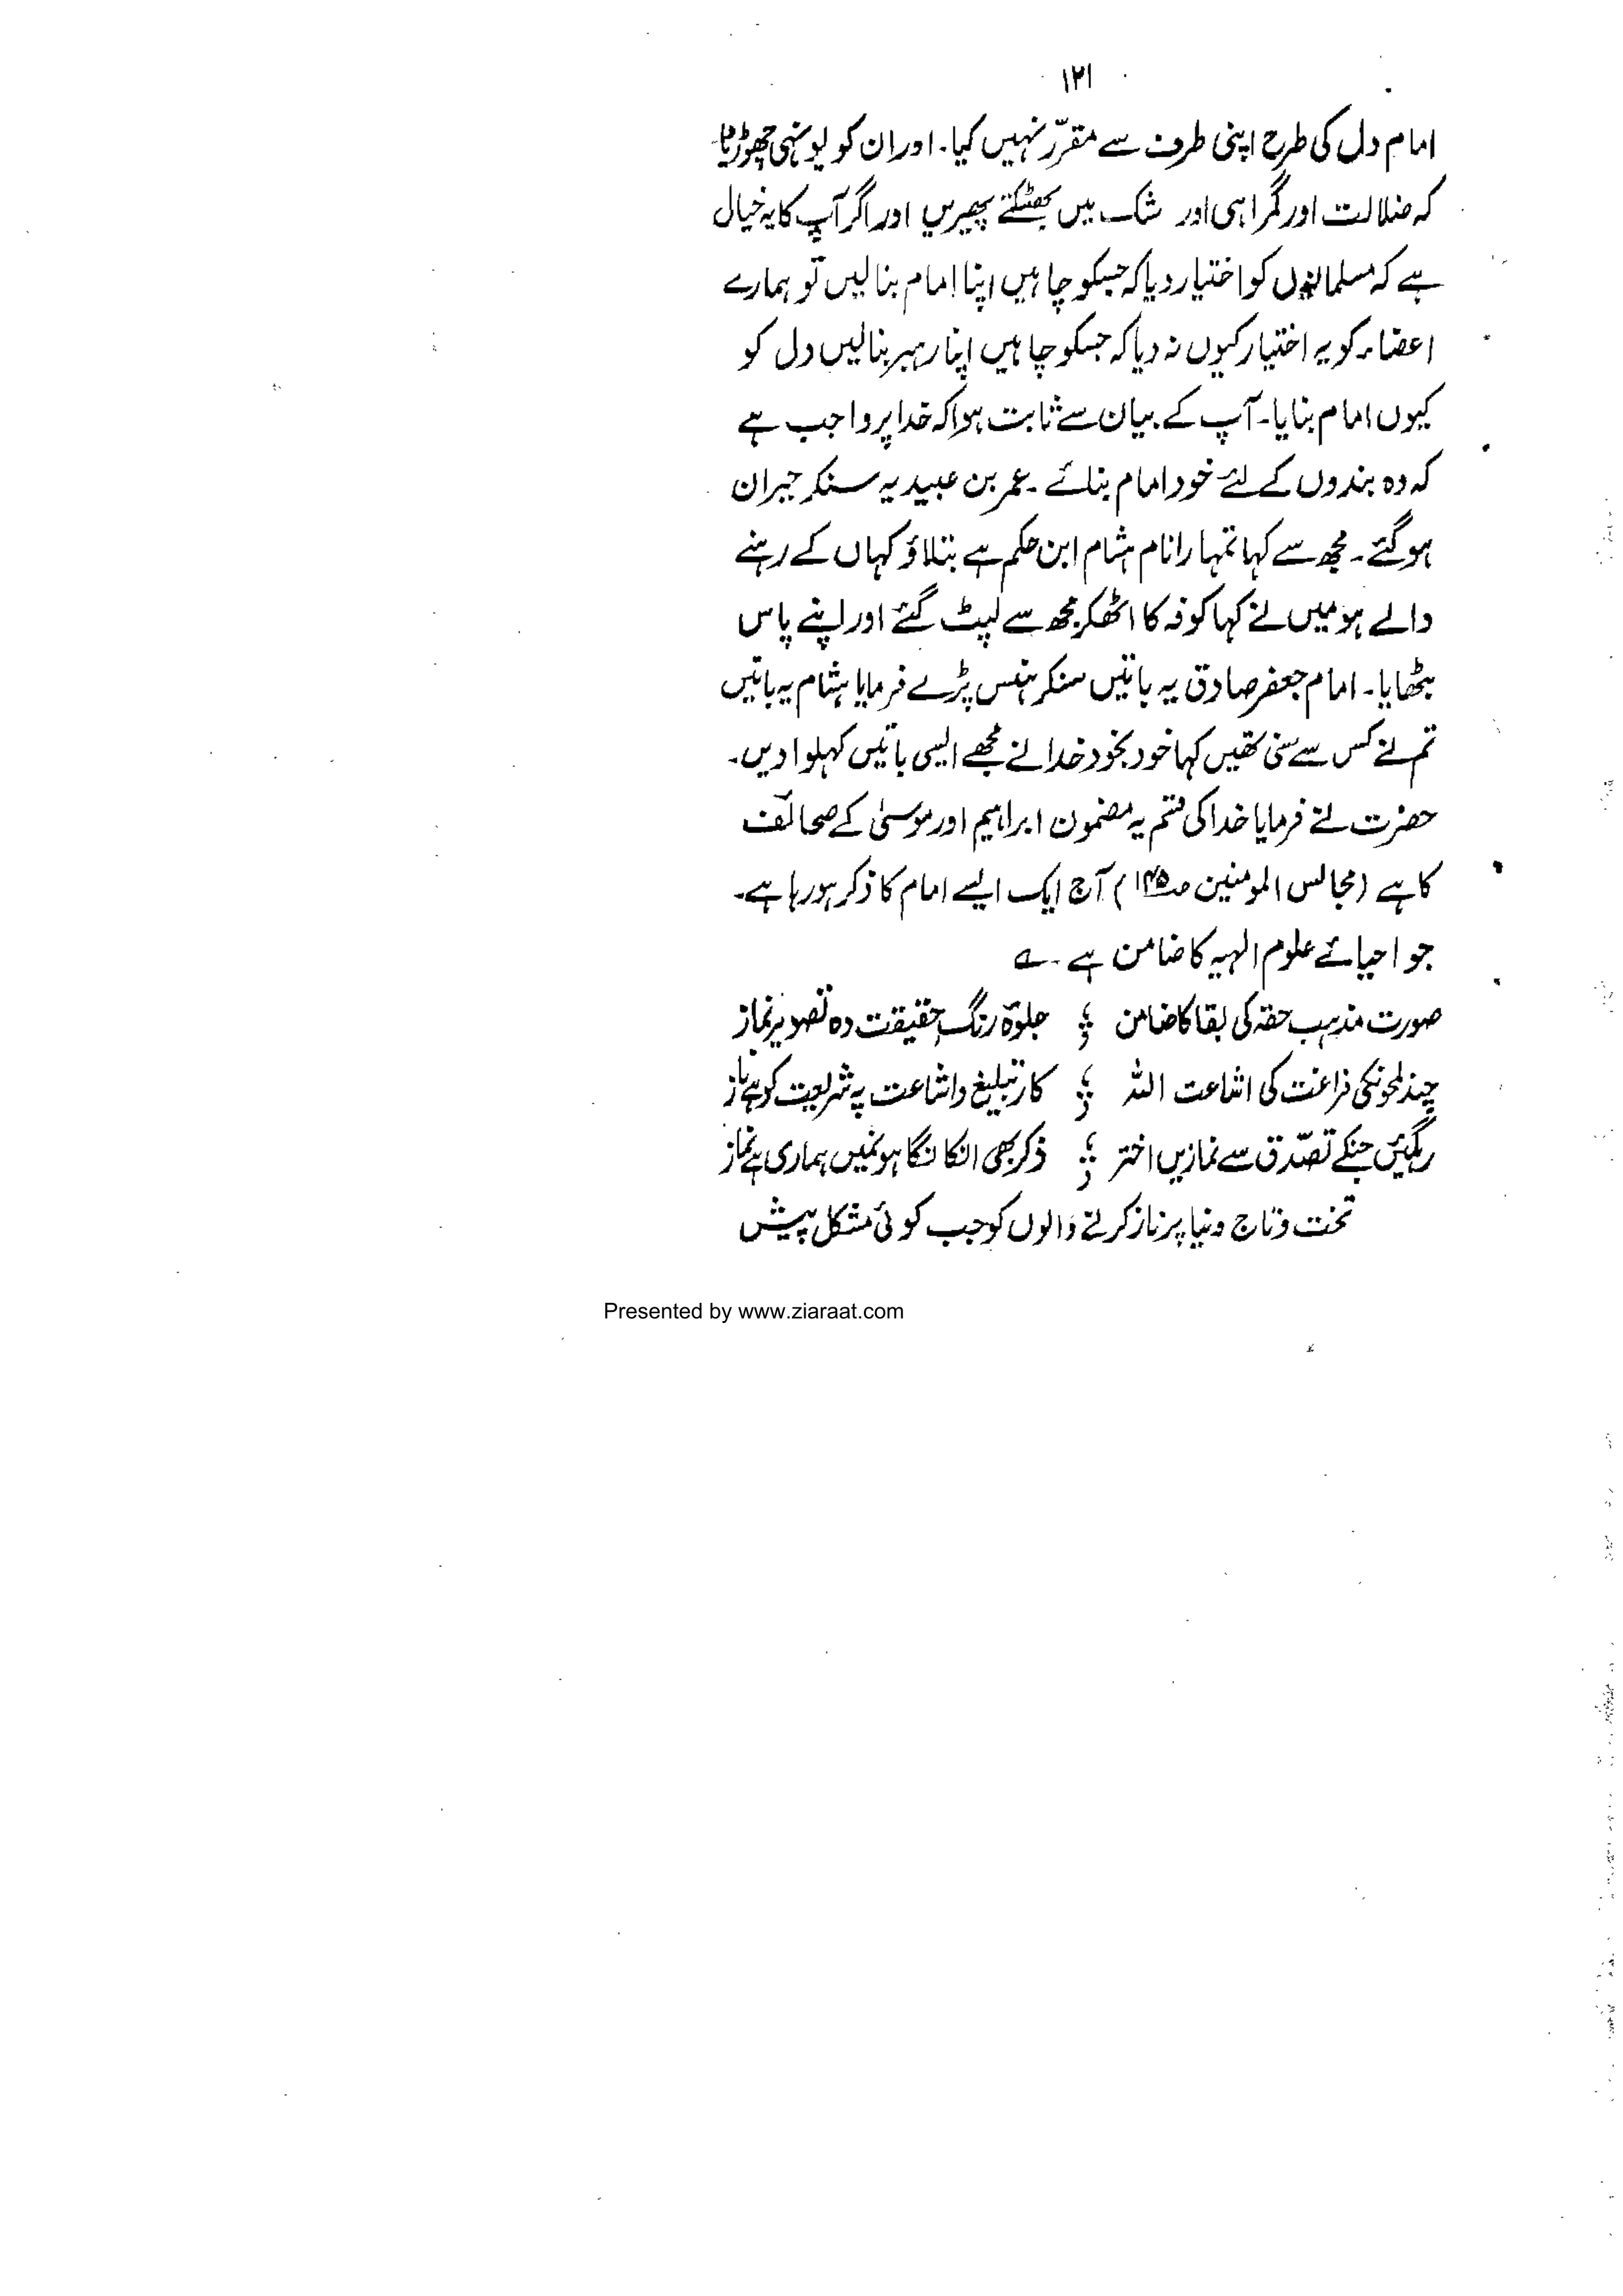 ۱۲۱
امام دل کی طرح اپنی طرف سے مقرّر نہیں کیا۔ اور ان کو یونہی چھوڑ دیا
کہ ضلالت اور گمراہی اور شک میں بھٹکتے پھیریں اور اگر آپ کا یہ خیال
ہے کہ مسلمانوں کو اختیار دیا کہ جسکو چاہیں اپنا امام بنا لیں تو ہمارے
اعضاء کو یہ اختیار کیوں نہ دیا کہ جسکو چاہیں اپنا رہبر بنالیں دل کو
کیوں امام بنایا۔ آپ کے بیان سے ثابت ہوا کہ خدا پر واجب ہے
کہ وہ بندوں کے لئے خود امام بنائے۔ عمر بن عبید یہ سنکر حیران
ہوگئے۔ مجھ سے کہا تمہارا نام ہشام ابن حکم ہے بتلاؤ کہاں کے رہنے
والے ہو میں نے کہا کوفہ کا اٹھکر مجھ سے لپٹ گئے اور اپنے پاس
بٹھایا۔ امام جعفر صادق یہ باتیں سنکر ہنس پڑے فرمایا ہشام یہ باتیں
تم نے کس سے سنی تھیں کہا خود بخود خدا نے مجھے ایسی باتیں کہلوا دیں۔
حضرت نے فرمایا خدا کی قسم یہ مضمون ابراہیم اور موسیٰ کے صحائف
کا ہے (مجالس المومنین صـ۱۴۵) آج ایک ایسے امام کا ذکر ہورہا ہے۔
جو احیائے علوم الہیہ کا ضامن ہے۔ ؎
صورت مذہب حقہ کی بقا کا ضامن ؛ جلوۂ رنگ حقیقت وہ تصویر نماز
چند لمحونکی فراغت کی اشاعت اللہ ؛ کار تبلیغ واشاعت پہ شریعت کو ہے ناز
رہگئیں جنکے تصدّق سے نمازیں اختر ؛ ذکر بھی انکا لگا ہونمیں ہماری ہے نماز
تخت وتاج دنیا پر ناز کرنے والوں کو جب کوئی مشکل پیش
Presented by www.ziaraat.com